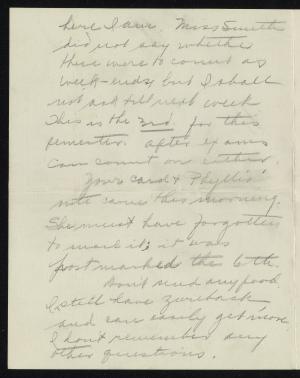 here I am. Miss Smith
did not say whether
these were to count as
week-ends but I shall
not ask till next week
This is the 3rd. for this
semester. After exams
can count on either.
Your card & Phyllis'
note came this morning.
She must have forgotten
to mail it; it was
post marked the 6th.
Don't send any food.
I still have zwieback
and can easily get more.
I don't remember any
other questions.